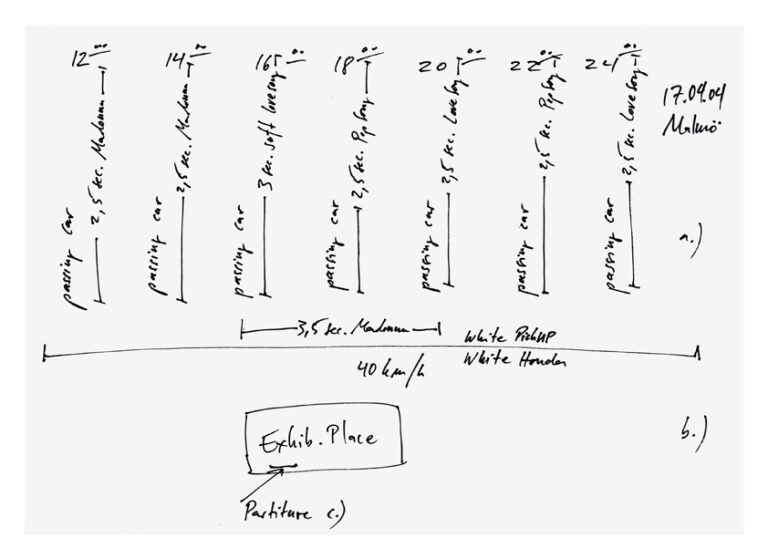 12⁰⁰ 14⁰⁰ 16⁰⁰ 18⁰⁰ 20⁰⁰ 22⁰⁰ 24⁰⁰
passing car 2,5 sec. Madonna
passing car 2,5 sec. Madonna
passing car 3 sec. soft lovesong
passing car 2,5 sec. Pop song
passing car 2,5 sec. Lovesong
passing car 2,5 sec. Pop song
passing car 2,5 sec. Lovesong
17.09.04
Malmö
a.)
3,5 sec. Madonna
White PickUP
White Honda
40 km/h
b.)
Exhib. Place
Partiture c.)